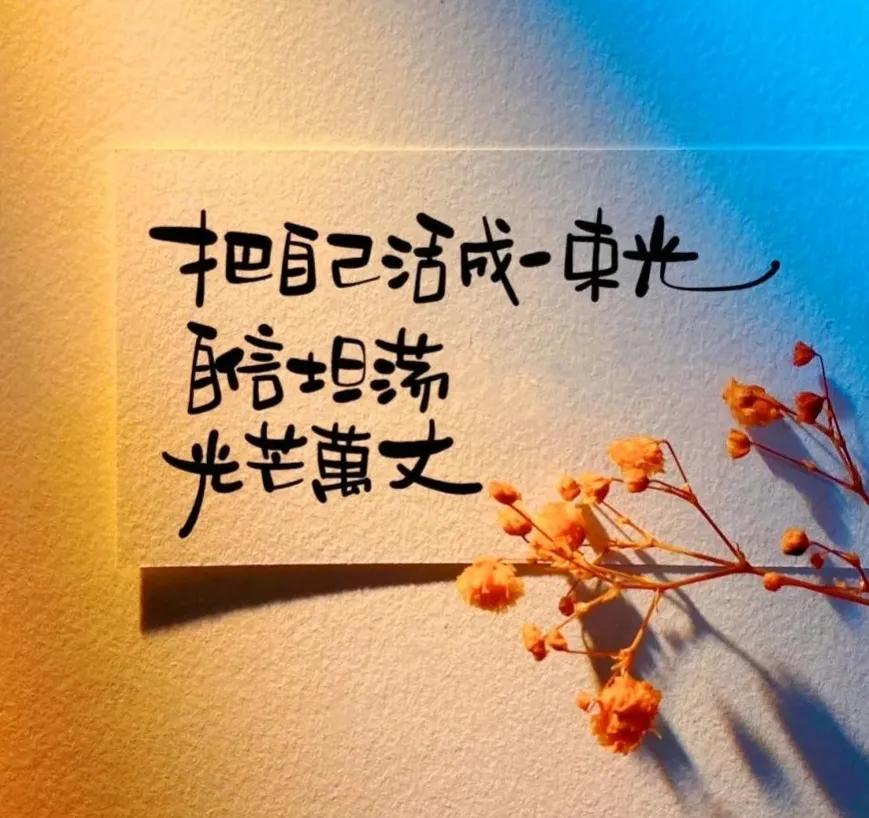 把自己活成一束光
自信坦荡
光芒萬丈